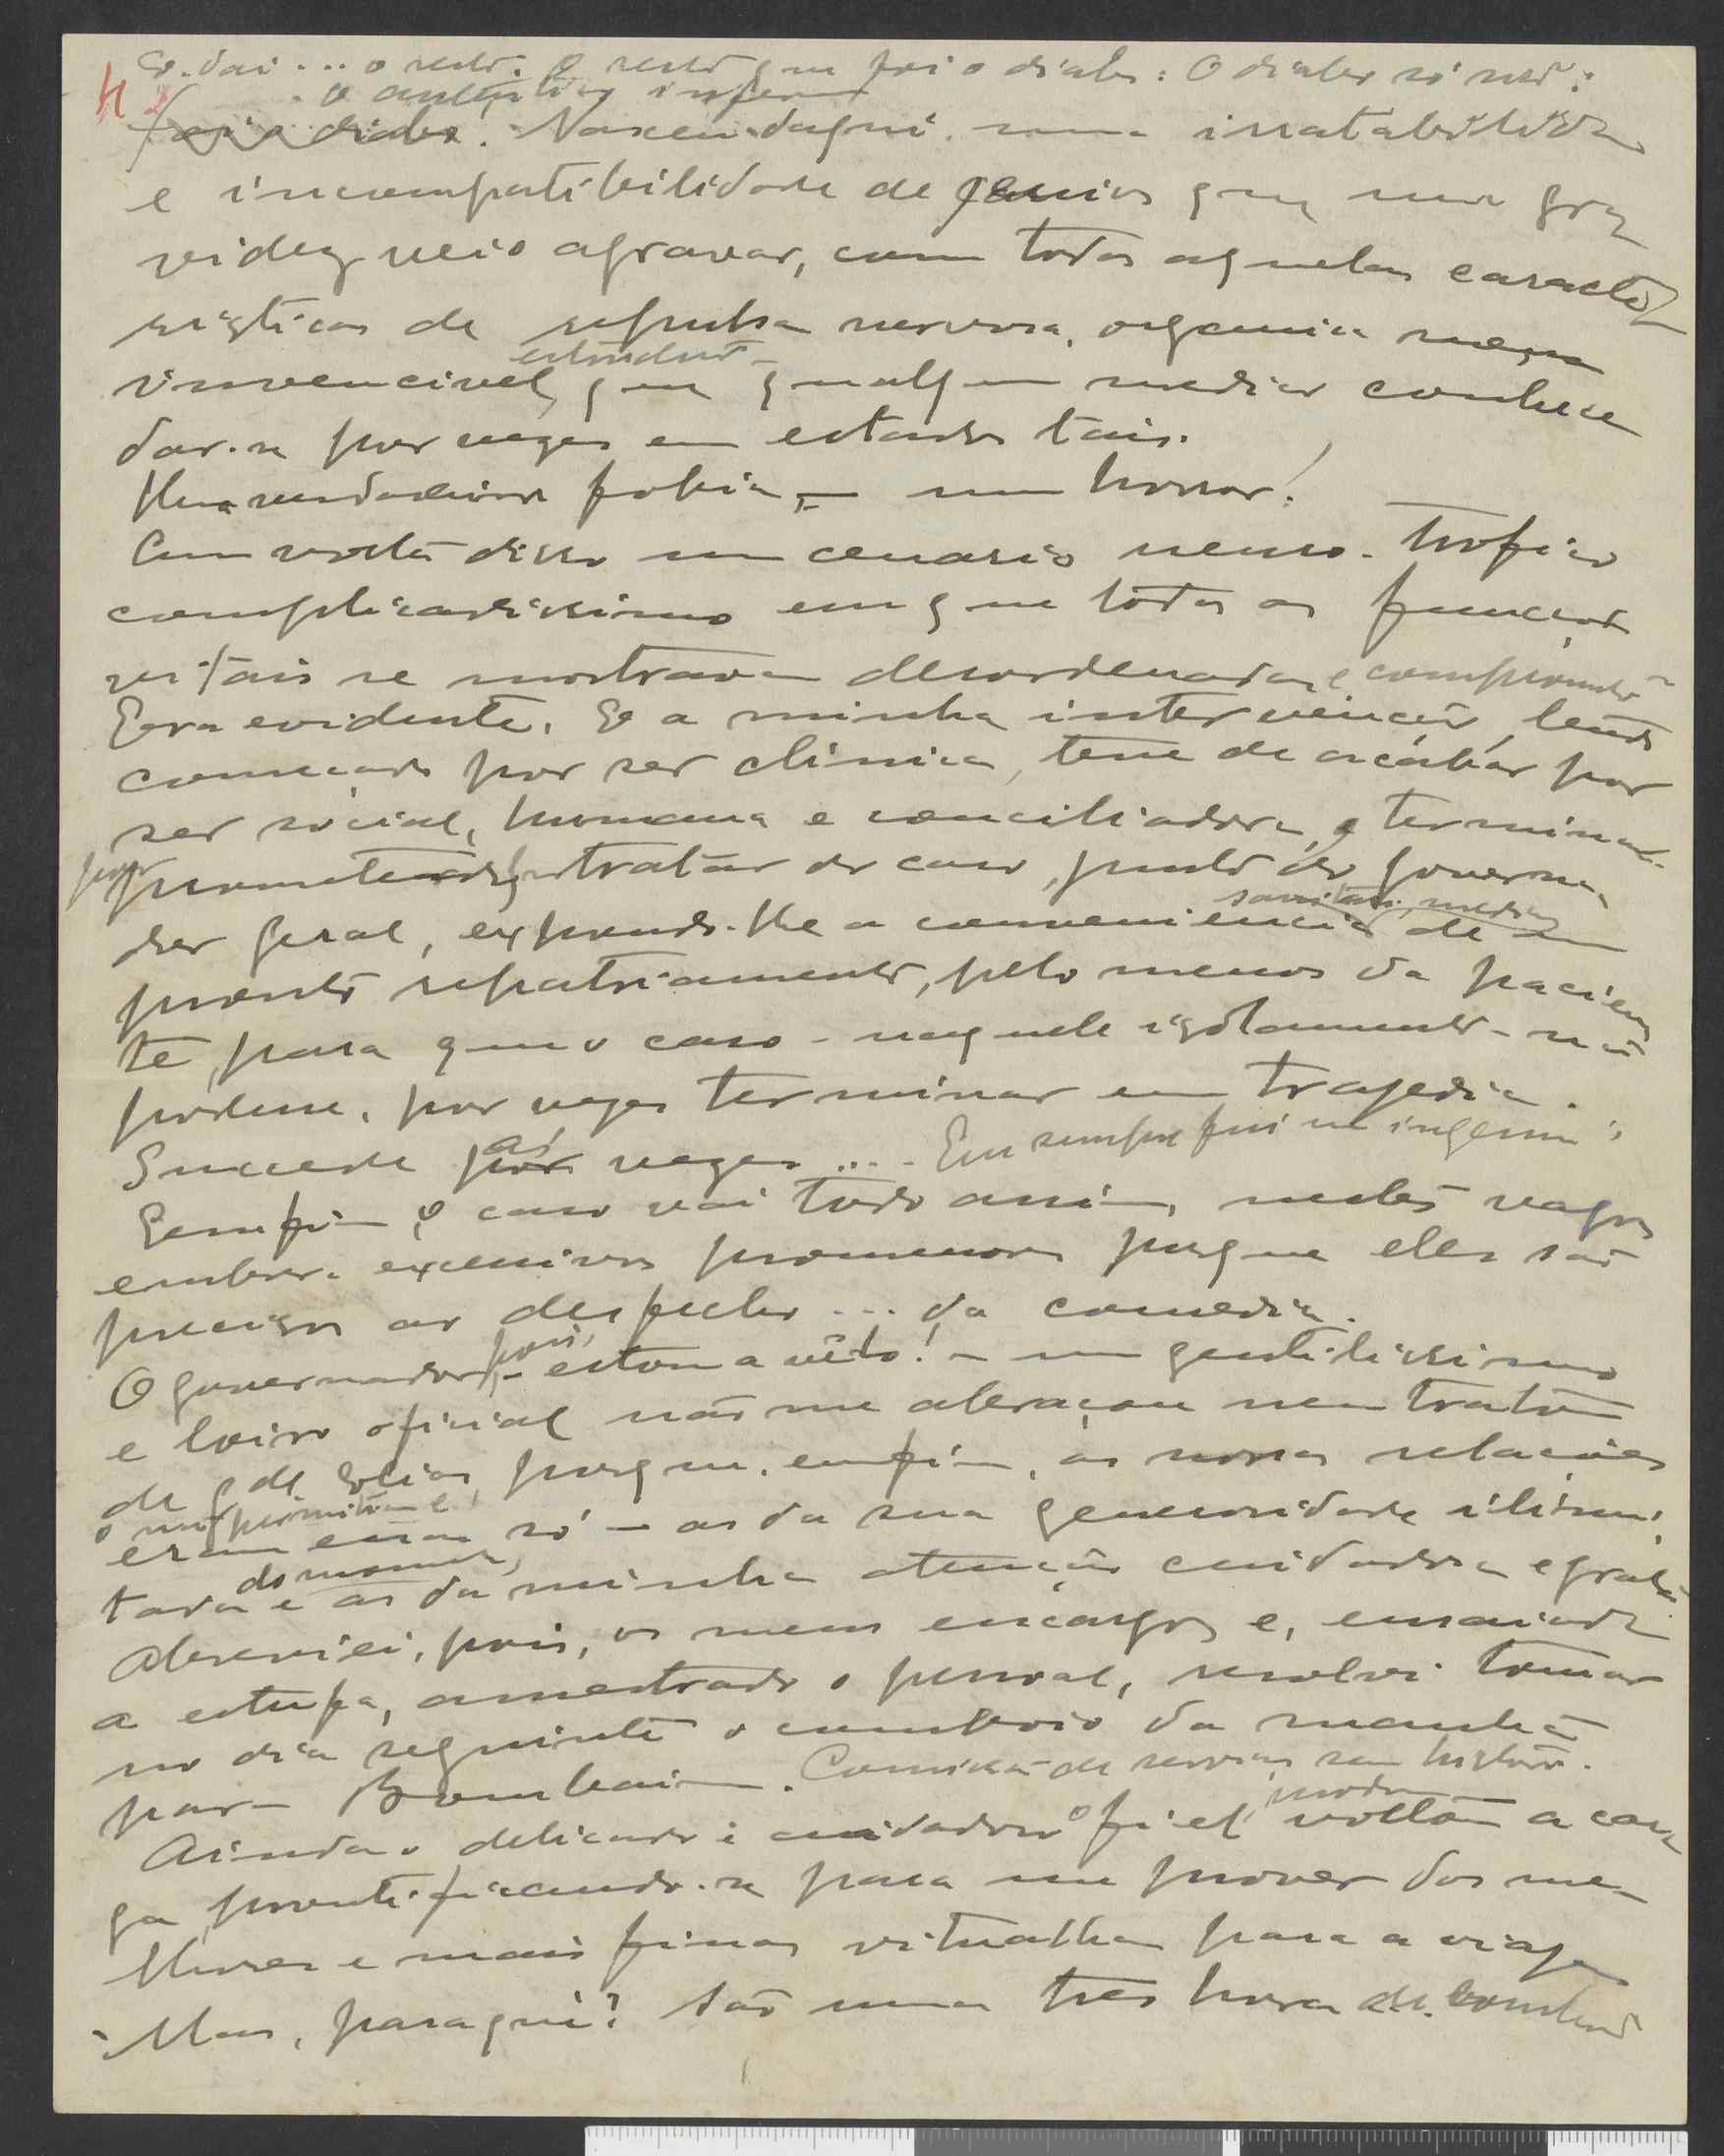 4
E. dai ... o resto. O resto que foi o diabo: O diabo só não:
o autentico inferno
foi o diabo. Nasceu daqui uma irratabilidade
e incompatibilidade de genios que uma gra-
videz veio agravar, com todas aquelas caracte-
risticas de repulsa nervosa, organica
invencivel, que qualquer medico conhece
dar-se por vezes em estados tais.
Uma verdadeira fobia, - um horror!
Em volta disso um cenario neuro-trofico
complicadissimo em que todas as funções
vitais se mostravam desordenadas e
Era evidente. E a minha intervenção, tendo
começado por ser clinica, teve de acabar por
ser social, humana e conciliadora, e terminar
por
tratar do caso, junto do governa-
dor geral, expondo-lhe a conveniencia de um
sanitaria, medica
pronto repatriamento, pelo menos da pacien-
te, para que o caso - naquele isolamento - não
podesse, por vezes terminar em tragedia.
Sucede ás vezes .... Eu sempre fui um ingenuo:
Emfim, o caso vai todo assim, nestes vagos
embora excessivos promenores porque eles são
precisos ao desfecho ... da comedia.
O governador, pois, - estou a vê-lo! - um gentilissimo
e loiro oficial não me abraçou nem tratou
de porque, emfim, as nossas relações
eram essas só - as da sua generosidade ilimi-
tada e as da minha atenção cuidadosa e grata.
do momento,
Abreviei, pois, os meus encargos e, ensaiada
a estufa, amestrado o pessoal, resolvi tomar
no dia seguinte o comboio da manhã
para Bombaim. Comissão de serviço sem historia.
Ainda o delicado e cuidadoso fiel voltou á car-
ga prontificando-se para me prover dos me-
lhores e mais finas vitualhas para a viagem
- Mas, para quê? São umas tres horas de comboio